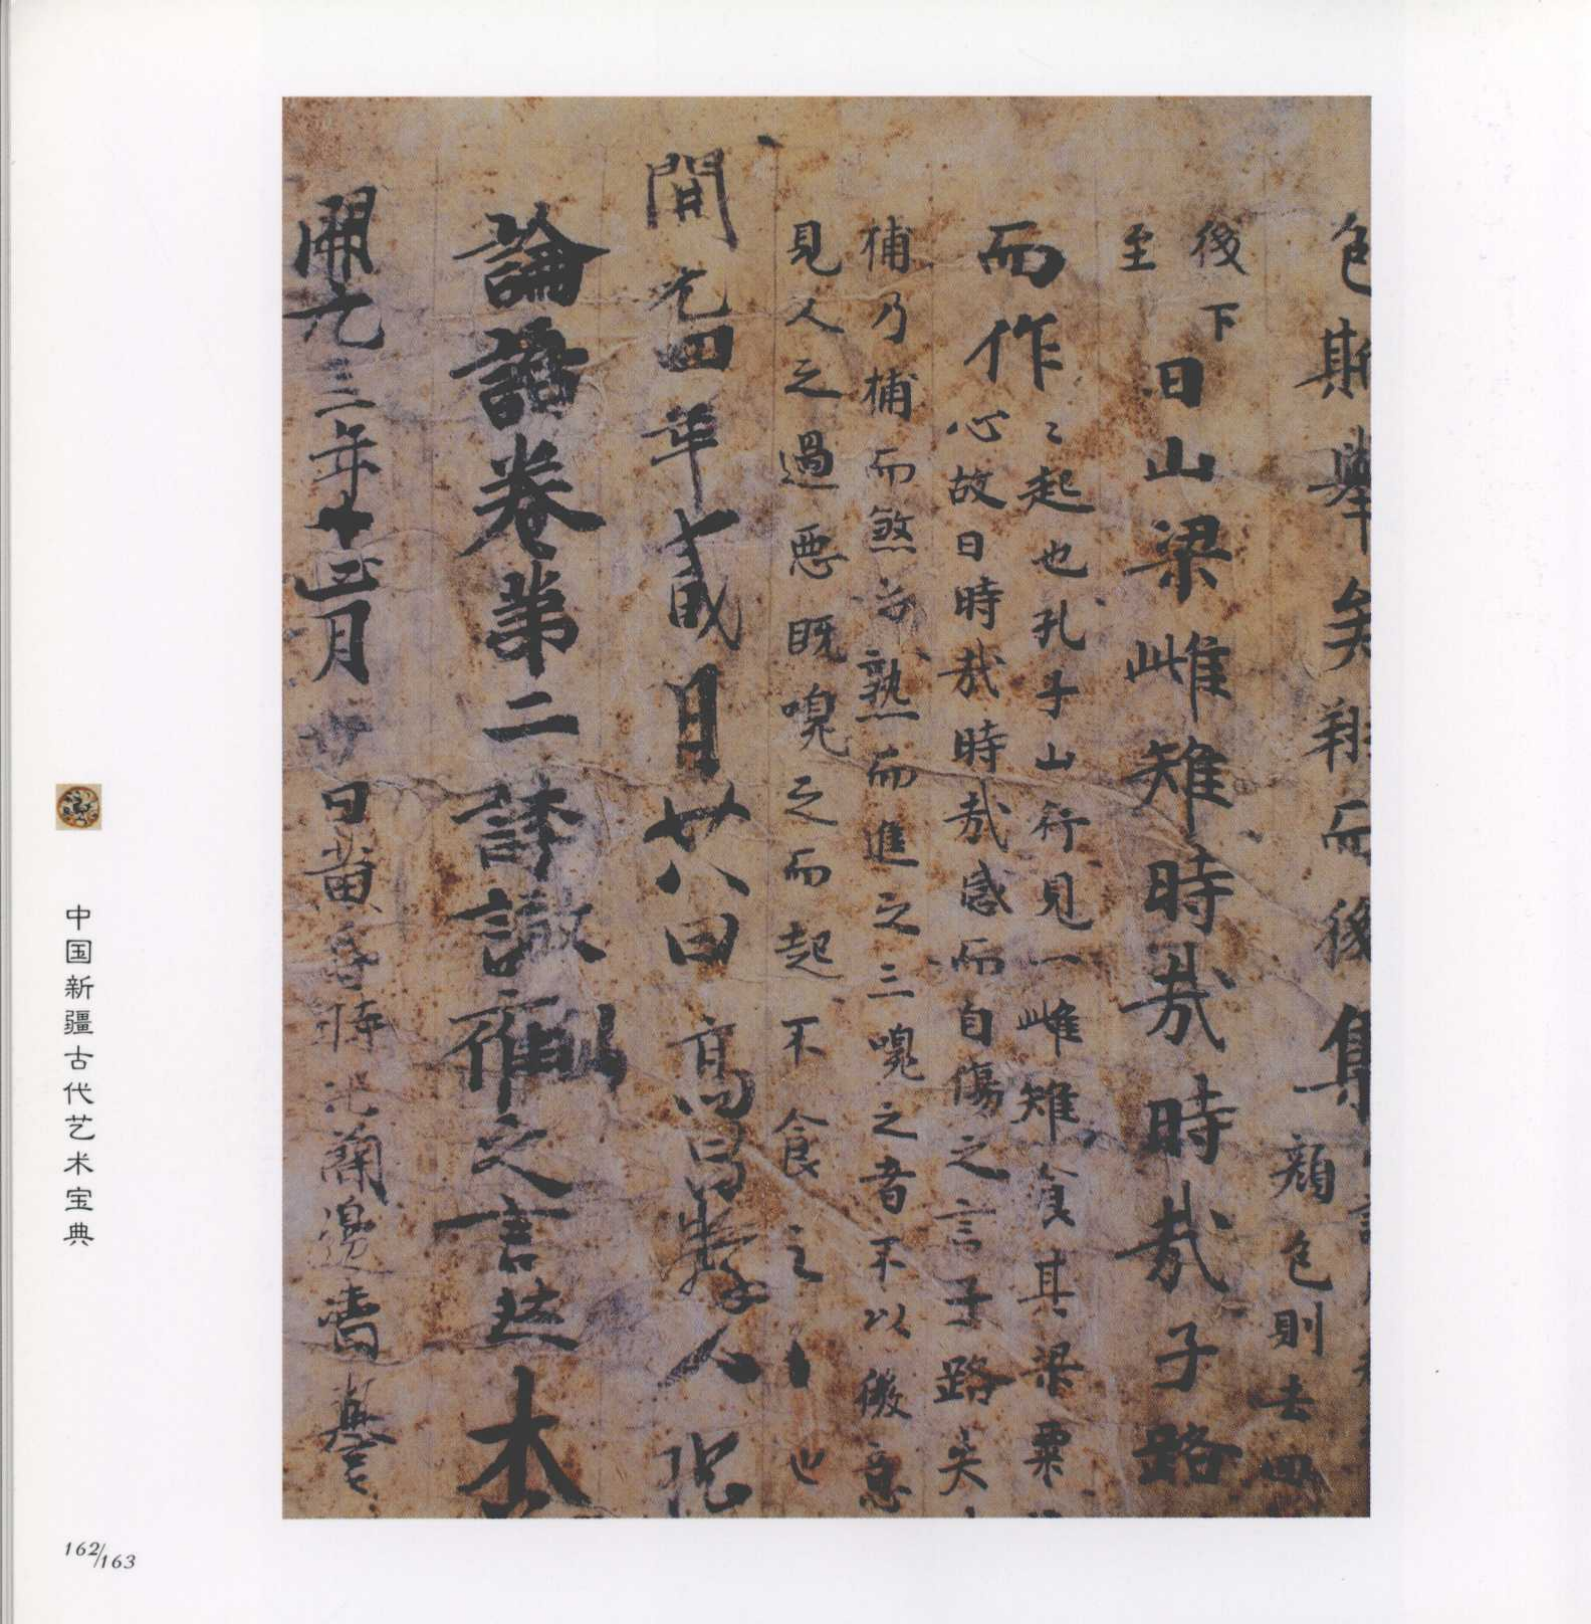 色斯舉矣翔而後集
顏色則去
後下
至
曰山梁雌雉時哉時哉子路
而作
起也孔子山行見一雌雉食其梁粟
心故曰時哉時哉感而自傷之言子路失
捕乃捕而煞之熟而進之三嗅之者不以微意
見人之過惡既嗅之而起不食之
也
開元四年貳月廿八日高昌
論語卷第二
之言
開元三年十
月
日黃昏時
邊書
中国新疆古代艺术宝典
162/163